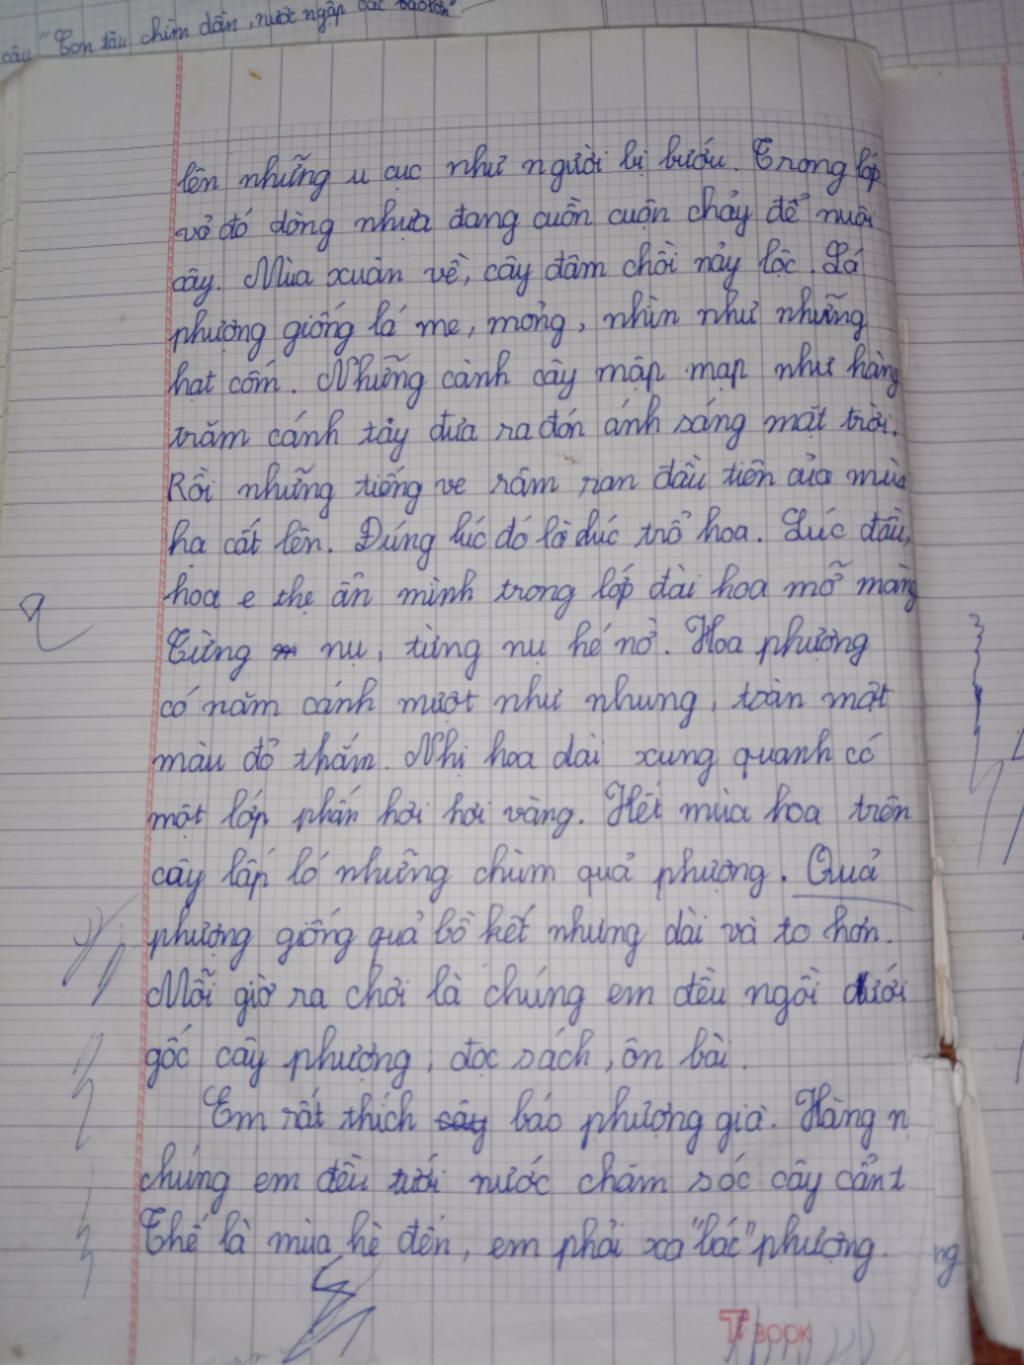 câu "Con tàu chìm dần, nước ngập các bao lơn"
lên những u cục như người bị bướu. Trong lớp
vỏ đó dòng nhựa đang cuồn cuộn chảy để nuôi
cây. Mùa xuân về, cây đâm chồi nảy lộc. Lá
phượng giống lá me, mỏng, nhìn như những
hạt cốm. Những cành cây mập mạp như hàng
trăm cánh tay đưa ra đón ánh sáng mặt trời.
Rồi những tiếng ve râm ran đầu tiên của mùa
hạ cất lên. Đúng lúc đó là lúc trổ hoa. Lúc đầu,
hoa e thẹ ẩn mình trong lớp đài hoa mỡ màng
Từng nụ, từng nụ hé nở. Hoa phượng
có năm cánh mượt như nhung, toàn một
màu đỏ thắm. Nhị hoa dài xung quanh có
một lớp phấn hơi hơi vàng. Hết mùa hoa trên
cây lấp ló những chùm quả phượng. Quả
phượng giống quả bồ kết nhưng dài và to hơn.
Mỗi giờ ra chơi là chúng em đều ngồi dưới
gốc cây phượng, đọc sách, ôn bài.
Em rất thích bác phượng già. Hàng n
chúng em đều tưới nước chăm sóc cây cẩn t
Thế là mùa hè đến, em phải xa "bác" phượng.
ng